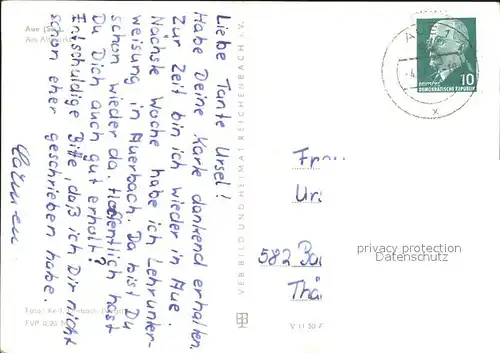 Aue
Liebe Tante Ursel!
Habe Deine Karte dankend erhalten.
Zur Zeit bin ich wieder in Aue.
Nächste Woche habe ich Lehrunter-
weisung in Auerbach. Da bist Du
schon wieder da. Hoffentlich hast
Du Dich auch gut erholt?
Entschuldige Bitte, daß ich Dir nicht
schon eher geschrieben habe.
Foto:
VEB BILD UND HEIMAT REICHENBACH i. V.
10
DEUTSCHE
DEMOKRATISCHE REPUBLIK
Ur
582
Thü
privacy protection
Datenschutz
V 11 50